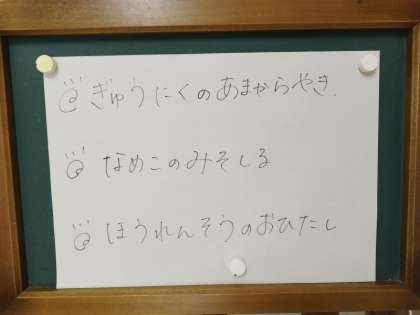 ぎゅうにくのあまからやき
なめこのみそしる
ほうれんそうのおひたし